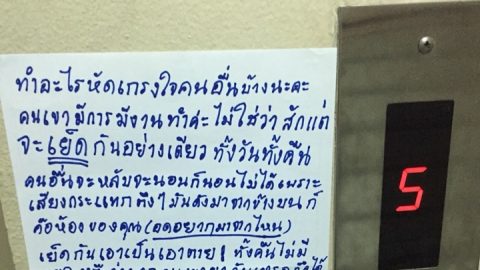 ทำอะไรหัดเกรงใจคนอื่นบ้างนะคะ
คนเขามีการมีงานทำค่ะ ไม่ใช่ว่าสักแต่
จะเย็ดกันอย่างเดียว ทั้งวันทั้งคืน
คนอื่นจะหลับจะนอนก็นอนไม่ได้เพราะ
เสียงกระแทก ดังมาจากข้างบน ก็
คือห้องของคุณ (อดอยากมาจากไหน)
เย็ดกันเอาเป็นเอาตาย ทั้งคืนไม่มี
5